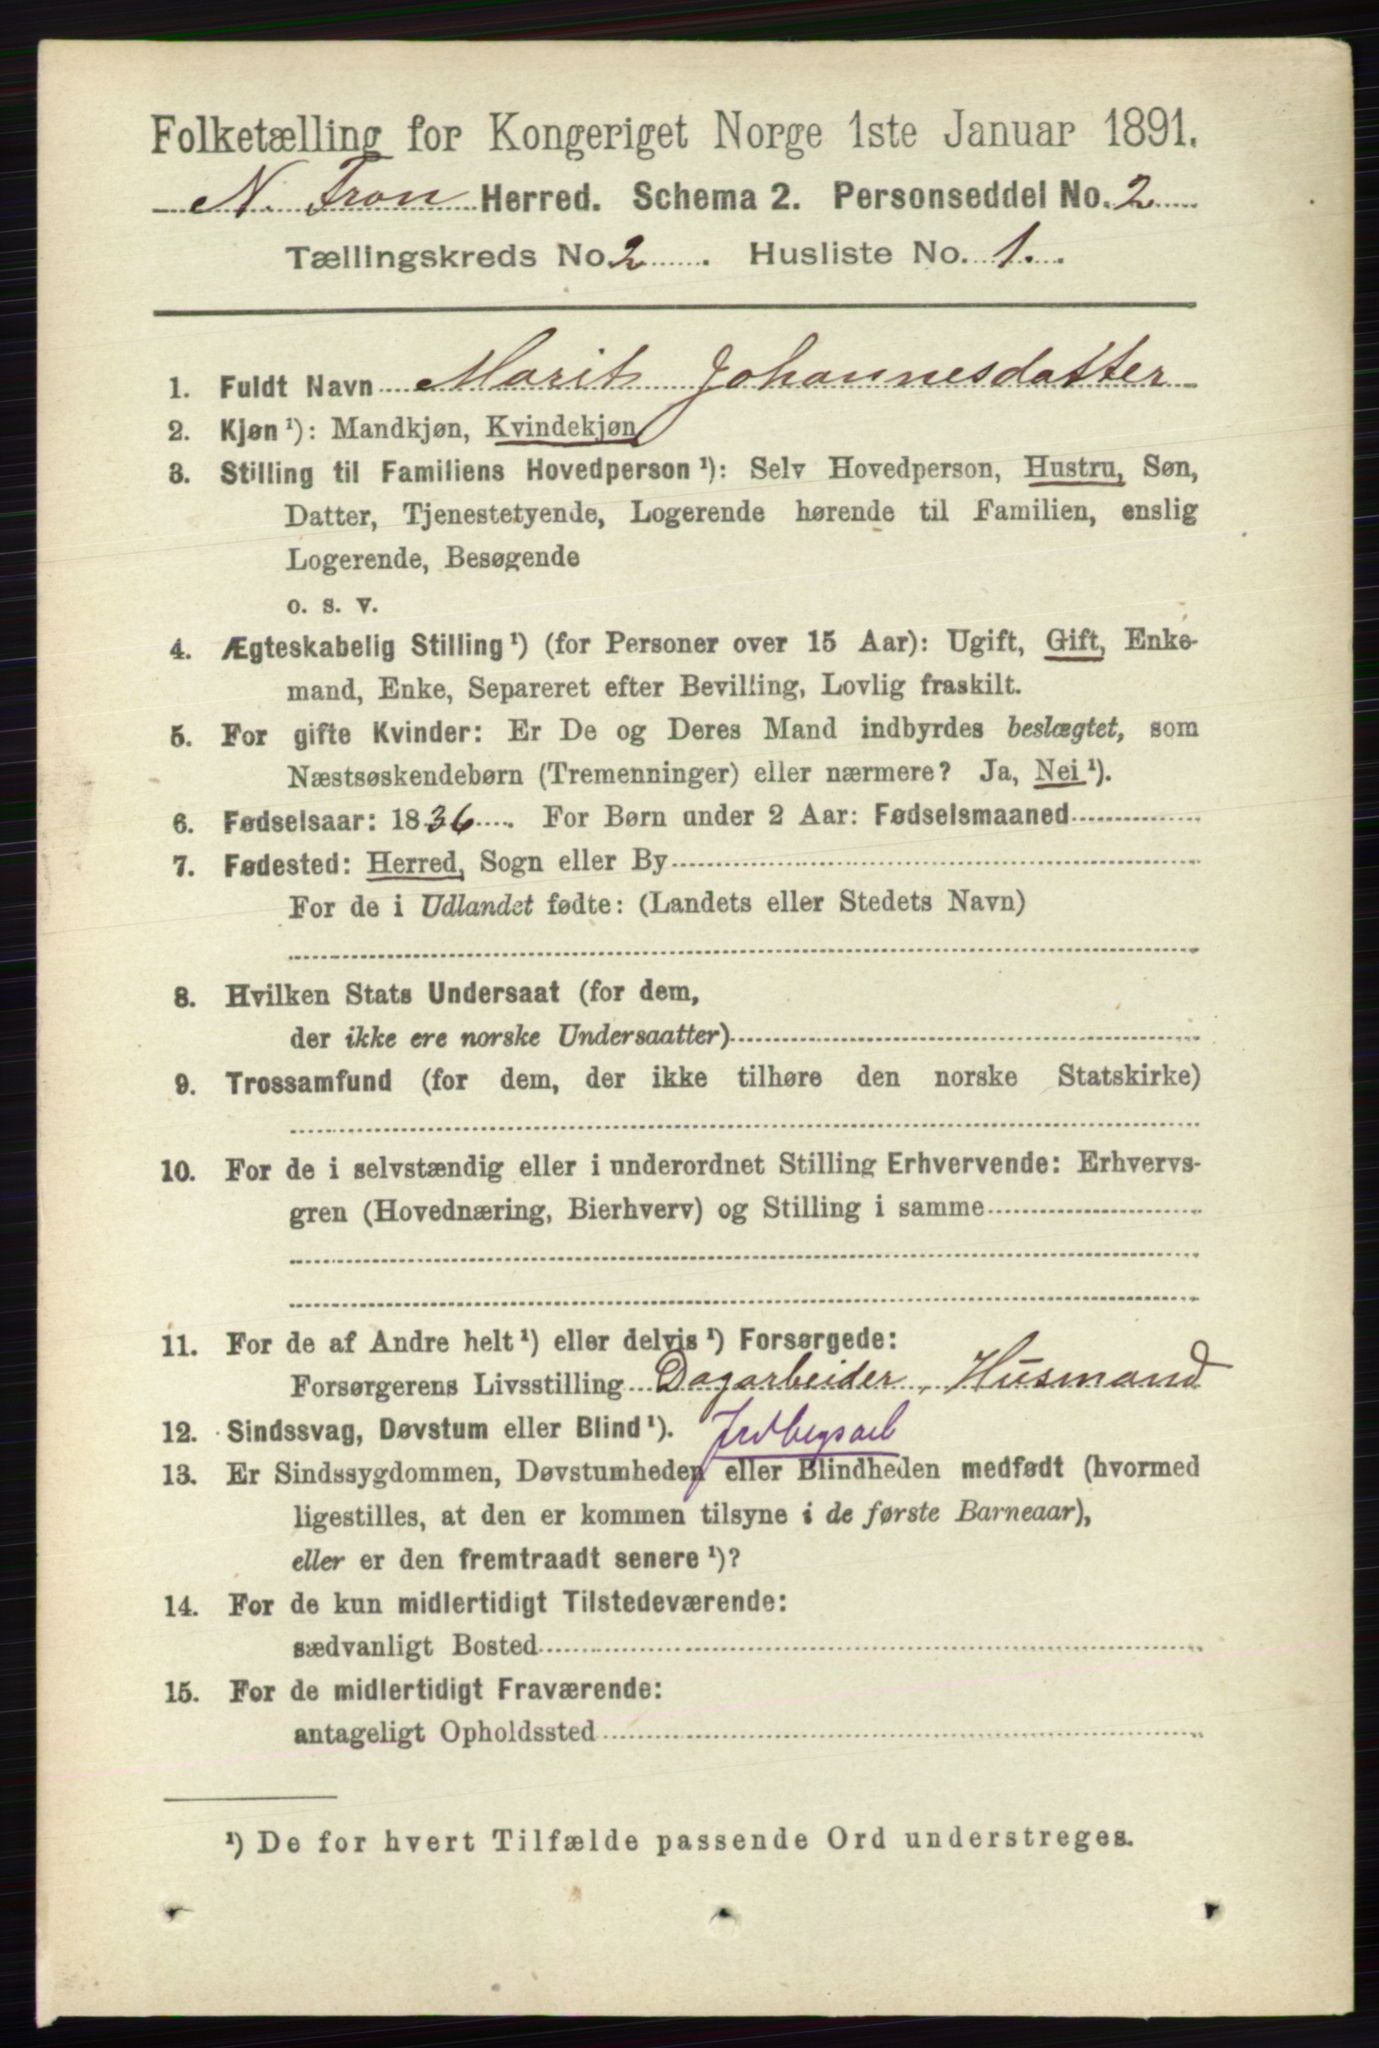 Folketælling for Kongeriget Norge 1ste Januar 1891.
N. Fron Herred. Schema 2. Personseddel No. 2
Tællingskreds No 2. Husliste No. 1.
1. Fuldt Navn Marit Johannesdatter
2. Kjøn ¹): Mandkjøn, Kvindekjøn
3. Stilling til Familiens Hovedperson ¹): Selv Hovedperson, Hustru, Søn,
Datter, Tjenestetyende, Logerende hørende til Familien, enslig
Logerende, Besøgende
o. s. v.
4. Ægteskabelig Stilling ¹) (for Personer over 15 Aar): Ugift, Gift, Enke-
mand, Enke, Separeret efter Bevilling, Lovlig fraskilt.
5. For gifte Kvinder: Er De og Deres Mand indbyrdes beslægtet, som
Næstsøskendebørn (Tremenninger) eller nærmere? Ja, Nei ¹).
6. Fødselsaar: 1836. For Børn under 2 Aar: Fødselsmaaned
7. Fødested: Herred, Sogn eller By
For de i Udlandet fødte: (Landets eller Stedets Navn)
8. Hvilken Stats Undersaat (for dem,
der ikke ere norske Undersaatter)
9. Trossamfund (for dem, der ikke tilhøre den norske Statskirke)
10. For de i selvstændig eller i underordnet Stilling Erhvervende: Erhvervs-
gren (Hovednæring, Bierhverv) og Stilling i samme
11. For de af Andre helt ¹) eller delvis ¹) Forsørgede:
Forsørgerens Livsstilling Dagarbeider, Husmand
12. Sindssvag, Døvstum eller Blind ¹). Jrdbrgsarb
13. Er Sindssygdommen, Døvstumheden eller Blindheden medfødt (hvormed
ligestilles, at den er kommen tilsyne i de første Barneaar),
eller er den fremtraadt senere ¹)?
14. For de kun midlertidigt Tilstedeværende:
sædvanligt Bosted
15. For de midlertidigt Fraværende:
antageligt Opholdssted
¹) De for hvert Tilfælde passende Ord understreges.